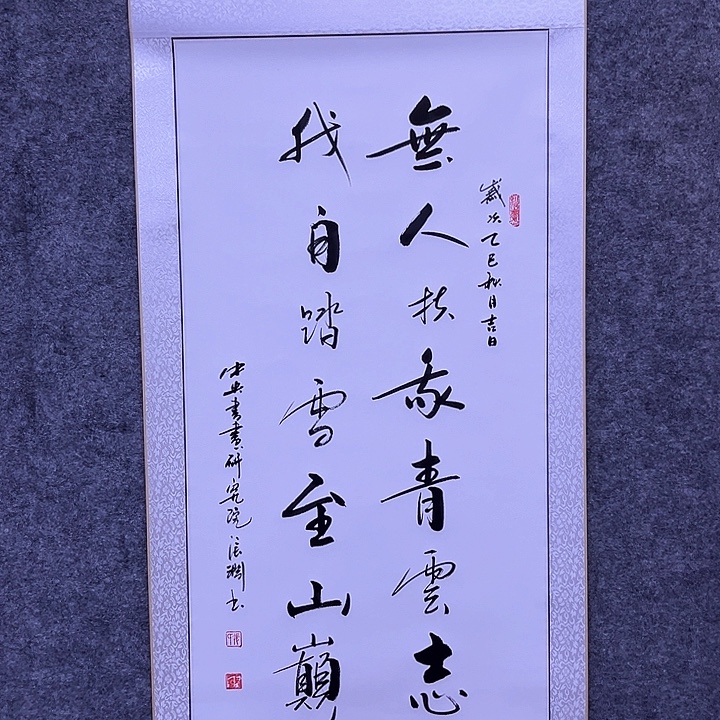 歲次乙巳秋月吉日
無人扶我青雲志
我自踏雪至山巔
中央書畫研究院張淵書